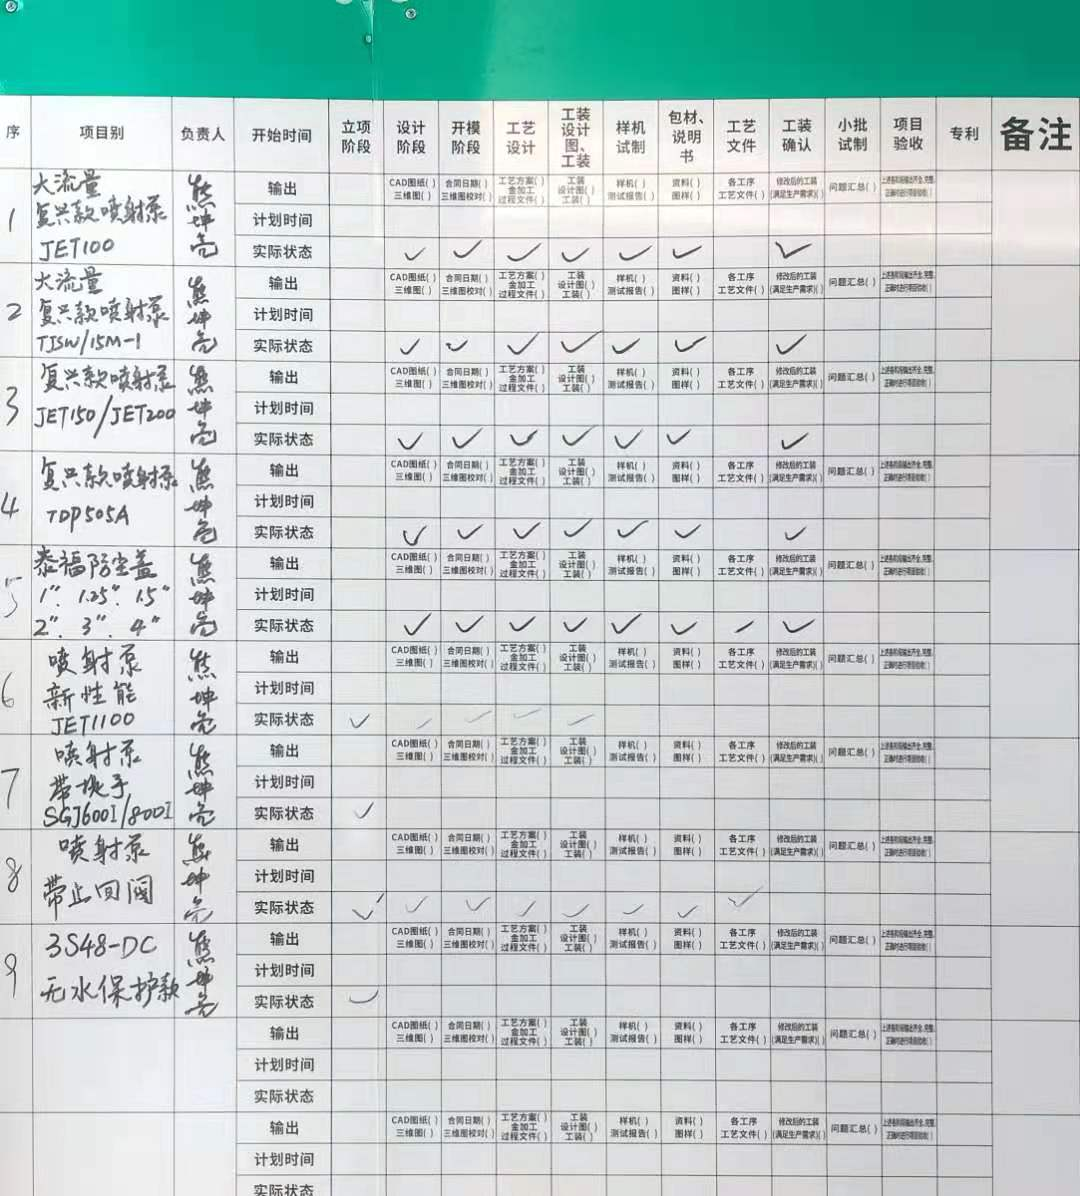 序 项目别 负责人 开始时间 立项阶段 设计阶段 开模阶段 工艺设计 工装设计图、工装 样机试制 包材、说明书 工艺文件 工装确认 小批试制 项目验收 专利 备注
1 大流量 复兴款喷射泵 JET100 熊坤亮
输出 CAD图纸( ) 三维图( ) 合同日期( ) 三维图校对( ) 工艺方案( ) 金加工过程文件( ) 工装设计图( ) 工装( ) 样机( ) 测试报告( ) 资料( ) 图样( ) 各工序工艺文件( ) 修改后的工装(满足生产需求)( ) 问题汇总( ) 上述各阶段输出齐全,完整,正确时进行项目验收( )
计划时间
实际状态 ✓ ✓ ✓ ✓ ✓ ✓ ✓
2 大流量 复兴款喷射泵 TJSW/15M-1 熊坤亮
输出 CAD图纸( ) 三维图( ) 合同日期( ) 三维图校对( ) 工艺方案( ) 金加工过程文件( ) 工装设计图( ) 工装( ) 样机( ) 测试报告( ) 资料( ) 图样( ) 各工序工艺文件( ) 修改后的工装(满足生产需求)( ) 问题汇总( ) 上述各阶段输出齐全,完整,正确时进行项目验收( )
计划时间
实际状态 ✓ ✓ ✓ ✓ ✓ ✓ ✓
3 复兴款喷射泵 JET150/JET200 熊坤亮
输出 CAD图纸( ) 三维图( ) 合同日期( ) 三维图校对( ) 工艺方案( ) 金加工过程文件( ) 工装设计图( ) 工装( ) 样机( ) 测试报告( ) 资料( ) 图样( ) 各工序工艺文件( ) 修改后的工装(满足生产需求)( ) 问题汇总( ) 上述各阶段输出齐全,完整,正确时进行项目验收( )
计划时间
实际状态 ✓ ✓ ✓ ✓ ✓ ✓ ✓
4 复兴款喷射泵 TDP505A 熊坤亮
输出 CAD图纸( ) 三维图( ) 合同日期( ) 三维图校对( ) 工艺方案( ) 金加工过程文件( ) 工装设计图( ) 工装( ) 样机( ) 测试报告( ) 资料( ) 图样( ) 各工序工艺文件( ) 修改后的工装(满足生产需求)( ) 问题汇总( ) 上述各阶段输出齐全,完整,正确时进行项目验收( )
计划时间
实际状态 ✓ ✓ ✓ ✓ ✓ ✓ ✓
5 泰福防尘盖 1". 1.25". 1.5" 2". 3". 4" 熊坤亮
输出 CAD图纸( ) 三维图( ) 合同日期( ) 三维图校对( ) 工艺方案( ) 金加工过程文件( ) 工装设计图( ) 工装( ) 样机( ) 测试报告( ) 资料( ) 图样( ) 各工序工艺文件( ) 修改后的工装(满足生产需求)( ) 问题汇总( ) 上述各阶段输出齐全,完整,正确时进行项目验收( )
计划时间
实际状态 ✓ ✓ ✓ ✓ ✓ ✓ ✓ ✓
6 喷射泵 新性能 JET1100 熊坤亮
输出 CAD图纸( ) 三维图( ) 合同日期( ) 三维图校对( ) 工艺方案( ) 金加工过程文件( ) 工装设计图( ) 工装( ) 样机( ) 测试报告( ) 资料( ) 图样( ) 各工序工艺文件( ) 修改后的工装(满足生产需求)( ) 问题汇总( ) 上述各阶段输出齐全,完整,正确时进行项目验收( )
计划时间
实际状态 ✓ ✓ ✓ ✓ ✓
7 喷射泵 带 子 SGJ600I/800I 熊坤亮
输出 CAD图纸( ) 三维图( ) 合同日期( ) 三维图校对( ) 工艺方案( ) 金加工过程文件( ) 工装设计图( ) 工装( ) 样机( ) 测试报告( ) 资料( ) 图样( ) 各工序工艺文件( ) 修改后的工装(满足生产需求)( ) 问题汇总( ) 上述各阶段输出齐全,完整,正确时进行项目验收( )
计划时间
实际状态 ✓
8 喷射泵 带止回阀 熊坤亮
输出 CAD图纸( ) 三维图( ) 合同日期( ) 三维图校对( ) 工艺方案( ) 金加工过程文件( ) 工装设计图( ) 工装( ) 样机( ) 测试报告( ) 资料( ) 图样( ) 各工序工艺文件( ) 修改后的工装(满足生产需求)( ) 问题汇总( ) 上述各阶段输出齐全,完整,正确时进行项目验收( )
计划时间
实际状态 ✓ ✓ ✓ ✓ ✓ ✓ ✓ ✓
9 3S48-DC 无水保护款 熊坤亮
输出 CAD图纸( ) 三维图( ) 合同日期( ) 三维图校对( ) 工艺方案( ) 金加工过程文件( ) 工装设计图( ) 工装( ) 样机( ) 测试报告( ) 资料( ) 图样( ) 各工序工艺文件( ) 修改后的工装(满足生产需求)( ) 问题汇总( ) 上述各阶段输出齐全,完整,正确时进行项目验收( )
计划时间
实际状态 ✓
输出 CAD图纸( ) 三维图( ) 合同日期( ) 三维图校对( ) 工艺方案( ) 金加工过程文件( ) 工装设计图( ) 工装( ) 样机( ) 测试报告( ) 资料( ) 图样( ) 各工序工艺文件( ) 修改后的工装(满足生产需求)( ) 问题汇总( ) 上述各阶段输出齐全,完整,正确时进行项目验收( )
计划时间
实际状态
输出 CAD图纸( ) 三维图( ) 合同日期( ) 三维图校对( ) 工艺方案( ) 金加工过程文件( ) 工装设计图( ) 工装( ) 样机( ) 测试报告( ) 资料( ) 图样( ) 各工序工艺文件( ) 修改后的工装(满足生产需求)( ) 问题汇总( ) 上述各阶段输出齐全,完整,正确时进行项目验收( )
计划时间
实际状态